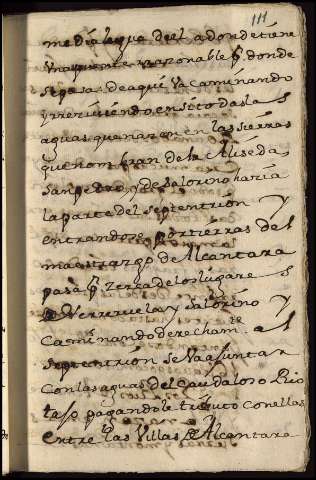 111
media legua de el a donde tiene
Una puente razonable q̃. donde
se pasa. de aqui Va caminando
y recojiendo en si todas las
aguas que nazen en las sierras
que nombran de la Aliseda
San pedro, y de Salorino hazia
la parte del septentrion y
entrandose por tierras del
maestrazgo de Alcantara
pasa por zerca de los lugares
de Herreruela y Salorino y
Caminando derechamte. al
septentrion se Va a juntar
Con las aguas del Caudaloso Rio
taxo pagandole tributo con ellas
entre las Villas de Alcantara